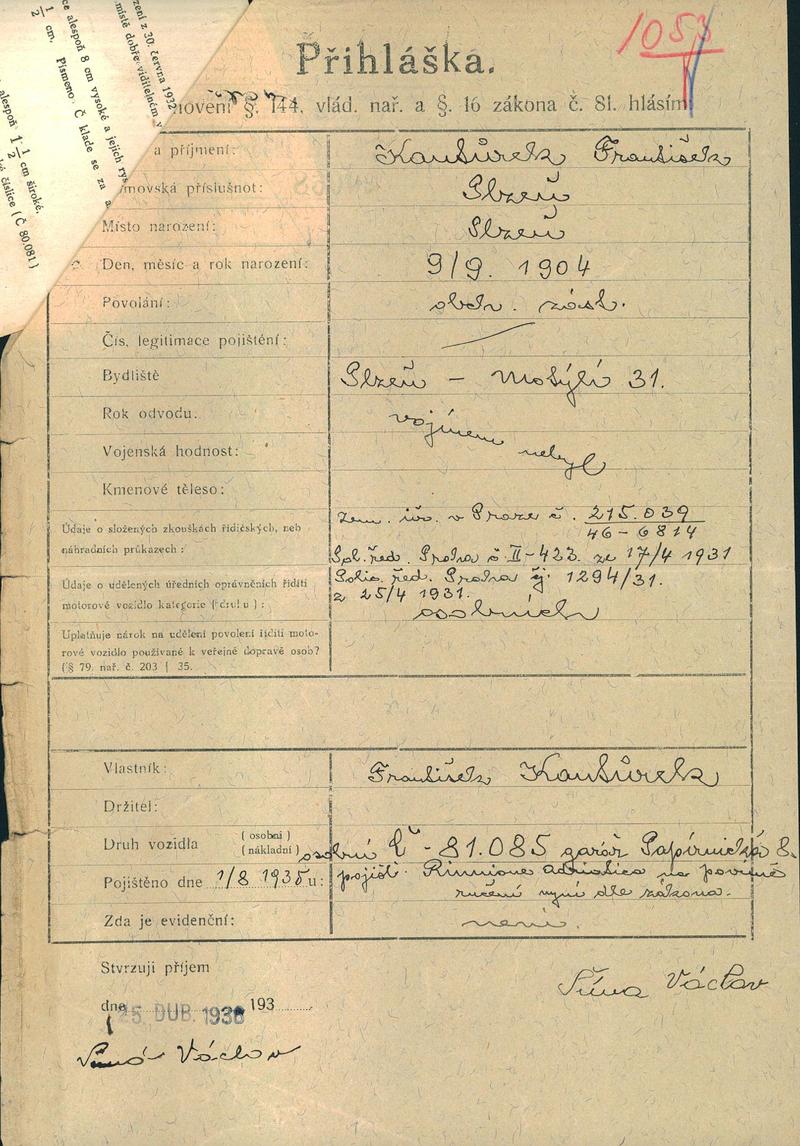 ce alespoň 8 cm vysoké a jejich rys
1/2 cm. Písmeno Č klade se za a
zení z 30. června 1932
místě dobře viditelném v
alespoň 1 1/2 cm široké.
é číslice (Č 80.081.)
1053
Přihláška.
novení §. 144. vlád. nař. a §. 16 zákona č. 81. hlásím:
a příjmení: Kantůrek František
movská příslušnot: Plzeň
Místo narození: Plzeň
Den, měsíc a rok narození: 9/9. 1904
Povolání: obch. zást.
Čís. legitimace pojištění: —
Bydliště Plzeň – 31.
Rok odvodu: vojínem
Vojenská hodnost: nebyl
Kmenové těleso:
Údaje o složených zkouškách řidičských, neb
náhradních průkazech:
Zem. úřo. v Praze č. 215.039
46-6814
Pol. řed. Praha č. II-423. ze 17/4 1931
Údaje o udělených úředních oprávněních říditi
motorové vozidlo kategorie (druhu):
Polic. řed. Praha čj. 1294/31.
z 25/4 1931.
osobních
Uplatňuje nárok na udělení povolení říditi moto-
rové vozidlo používané k veřejné dopravě osob?
(§ 79. nař. č. 203 | 35.
Vlastník: František Kantůrek
Držitel:
Druh vozidla (osobní) (nákladní) osobní Č - 81.085 garáž Papírnická 8.
Pojištěno dne 1/8 1935 u: pojišť. Riunione Adriatica na povinné
ručení nyní dle zákona.
Zda je evidenční: není.
Stvrzuji příjem
dne 25. DUB. 1936 193
Václav
Václav